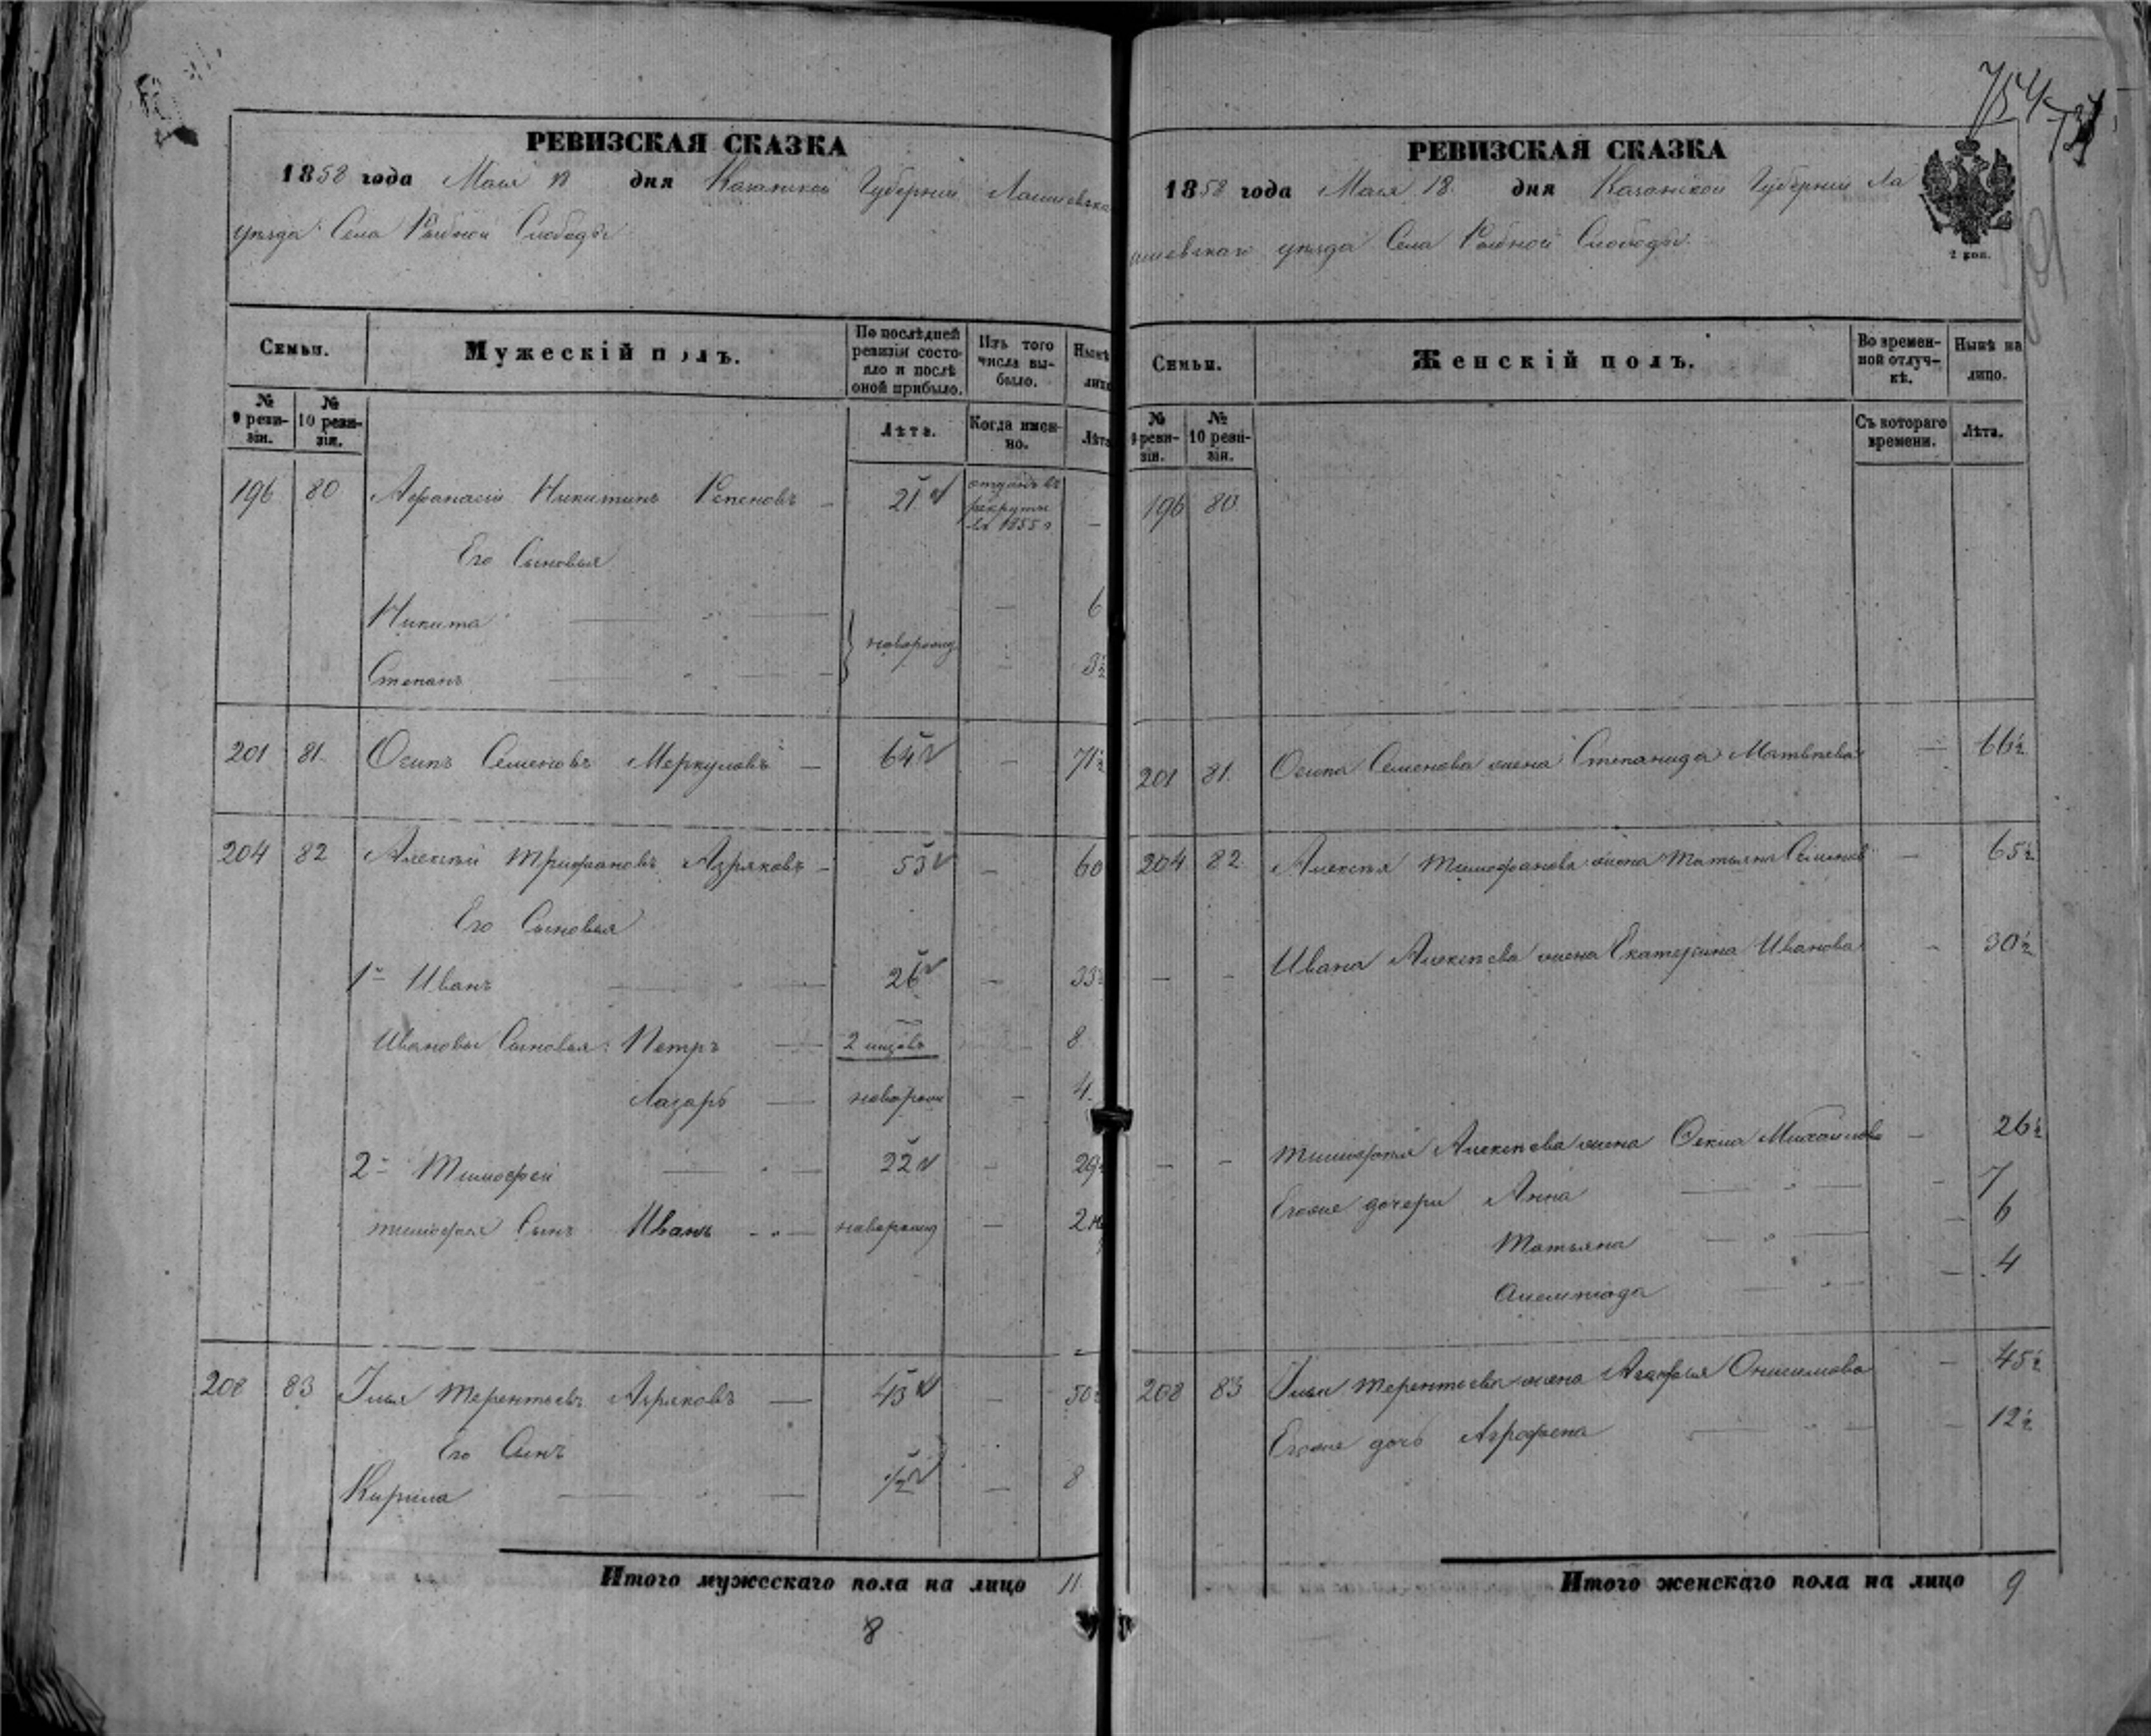 754
РЕВИЗСКАЯ СКАЗКА
1858 года Мая 18 дня Казанской Губернии Лаишевска
уѣзда Села Рыбной Слободы
Семьи. Мужескій полъ. По послѣдней ревизіи состояло и послѣ оной прибыло. Изъ того числа выбыло. Нынѣ лицо
№ 9 ревизіи. № 10 ревизіи. Лѣта. Когда именно. Лѣта
196 80 Афанасій Никитинъ Репеновъ — 21 отданъ въ рекруты въ 1855 г —
Его Сыновья
Никита — 6
новорожд
Степанъ — 3½
201 81 Осипъ Семеновъ Меркуловъ — 64 — 71½
204 82 Алексѣй Трифановъ Агряковъ — 53 — 60
Его Сыновья
1й Иванъ — 26 — 33½
Ивановы Сыновья: Петръ — 2 — 8
Лазарь — новорож — 4
2й Тимофей — 22 — 29½
Тимофея Сынъ Иванъ — новорожд — 2
208 83 Илья Терентьевъ Агряковъ — 43 — 50½
Его Сынъ
Кирила — ½ — 8
Итого мужескаго пола на лицо 11
8
РЕВИЗСКАЯ СКАЗКА
1858 года Мая 18 дня Казанской Губерніи Ла
ишевскаго уѣзда Села Рыбной Слободы
2 коп.
Семьи. Женскій полъ. Во временной отлучкѣ. Нынѣ на лицо.
№ 9 ревизіи. № 10 ревизіи. Съ котораго времени. Лѣта.
196 80
201 81 Осипа Семенова жена Степанида Матвѣева — 66½
204 82 Алексѣя Тимофанова жена Татьяна Семенов — 65½
— — Ивана Алексѣева жена Екатерина Иванова — 30½
— — Тимофея Алексѣева жена Фекла Михайлова — 26½
Егоже дочери Анна — 7
Татьяна — 6
Алемпіода — 4
208 83 Ильи Терентьева жена Агафья Онисимова — 45½
Егоже дочь Аграфена — 12½
Итого женскаго пола на лицо 9